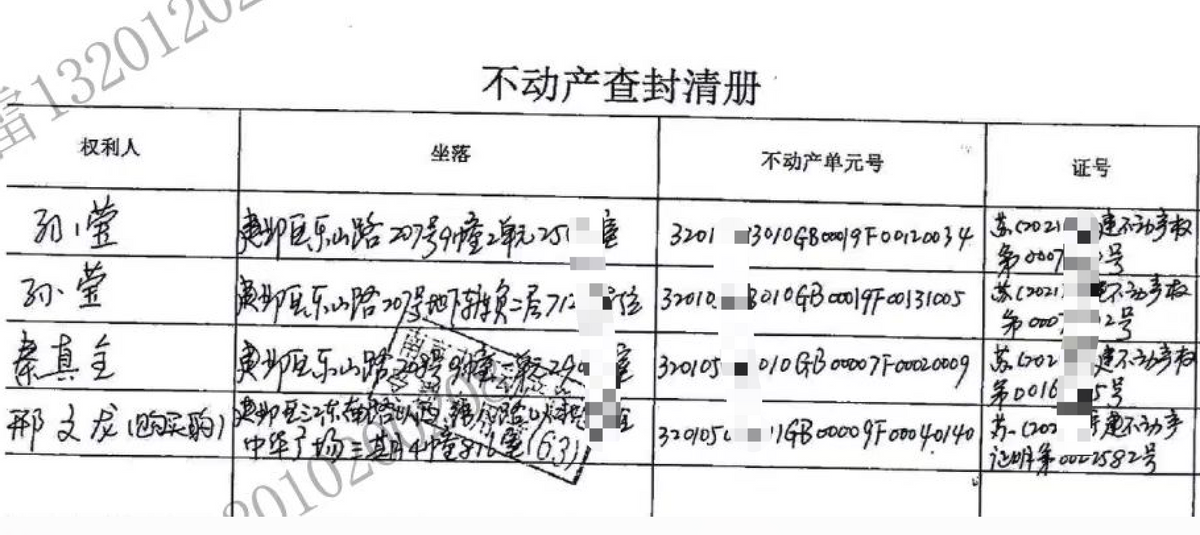 富13201202
不动产查封清册
权利人 坐落 不动产单元号 证号
孙莹 建邺区乐山路207号9幢2单元25 室 3201 3010GB00019F00120034 苏(2021 建不动产权
第0007 号
孙莹 建邺区乐山路207号地下车库负二层712 位 32010 3010GB00019F00131005 苏(2021 不动产权
第0007 2号
秦真全 建邺区乐山路208号9幢 单元290 室 320105 010GB00007F00020009 苏(202 建不动产权
第0016 5号
邢文龙(购买的) 建邺区江东南路以西 路以 320105 1GB00009F00040140 苏(202 建不动产
中华广场三期4幢876室(63) 证明第0002582号
2010202